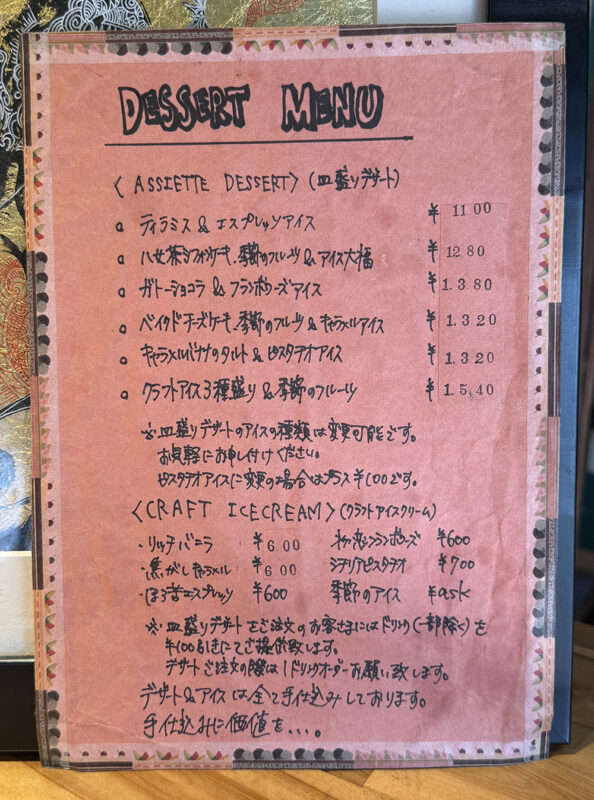 DESSERT MENU
〈ASSIETTE DESSERT〉(皿盛りデザート)
。ティラミス & エスプレッソアイス ¥1100
。八女茶シフォンケーキ、季節のフルーツ & アイス大福 ¥1280
。ガトーショコラ & フランボワーズアイス ¥1.380
。ベイクドチーズケーキ、季節のフルーツ & キャラメルアイス ¥1.320
。キャラメルバナナのタルト & ピスタチオアイス ¥1.320
。クラフトアイス3種盛り & 季節のフルーツ ¥1.540
※皿盛りデザートのアイスの種類は変更可能です。
お気軽にお申し付けください。
ピスタチオアイスに変更の場合はプラス¥100です。
〈CRAFT ICECREAM〉(クラフトアイスクリーム)
・リッチバニラ ¥600 初恋フランボワーズ ¥600
・焦がしキャラメル ¥600 シチリアピスタチオ ¥700
・ほろ苦エスプレッソ ¥600 季節のアイス ¥ask
※皿盛りデザートをご注文のお客さまにはドリンク(一部除く)を
¥100引きにてご提供致します。
デザートご注文の際は1ドリンクオーダーお願い致します。
デザート&アイスは全て手仕込みしております。
手仕込みに価値を...。